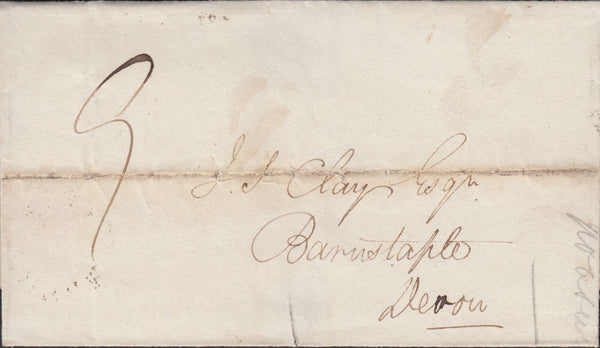 J S Clay Esqr
Barnstaple
Devon